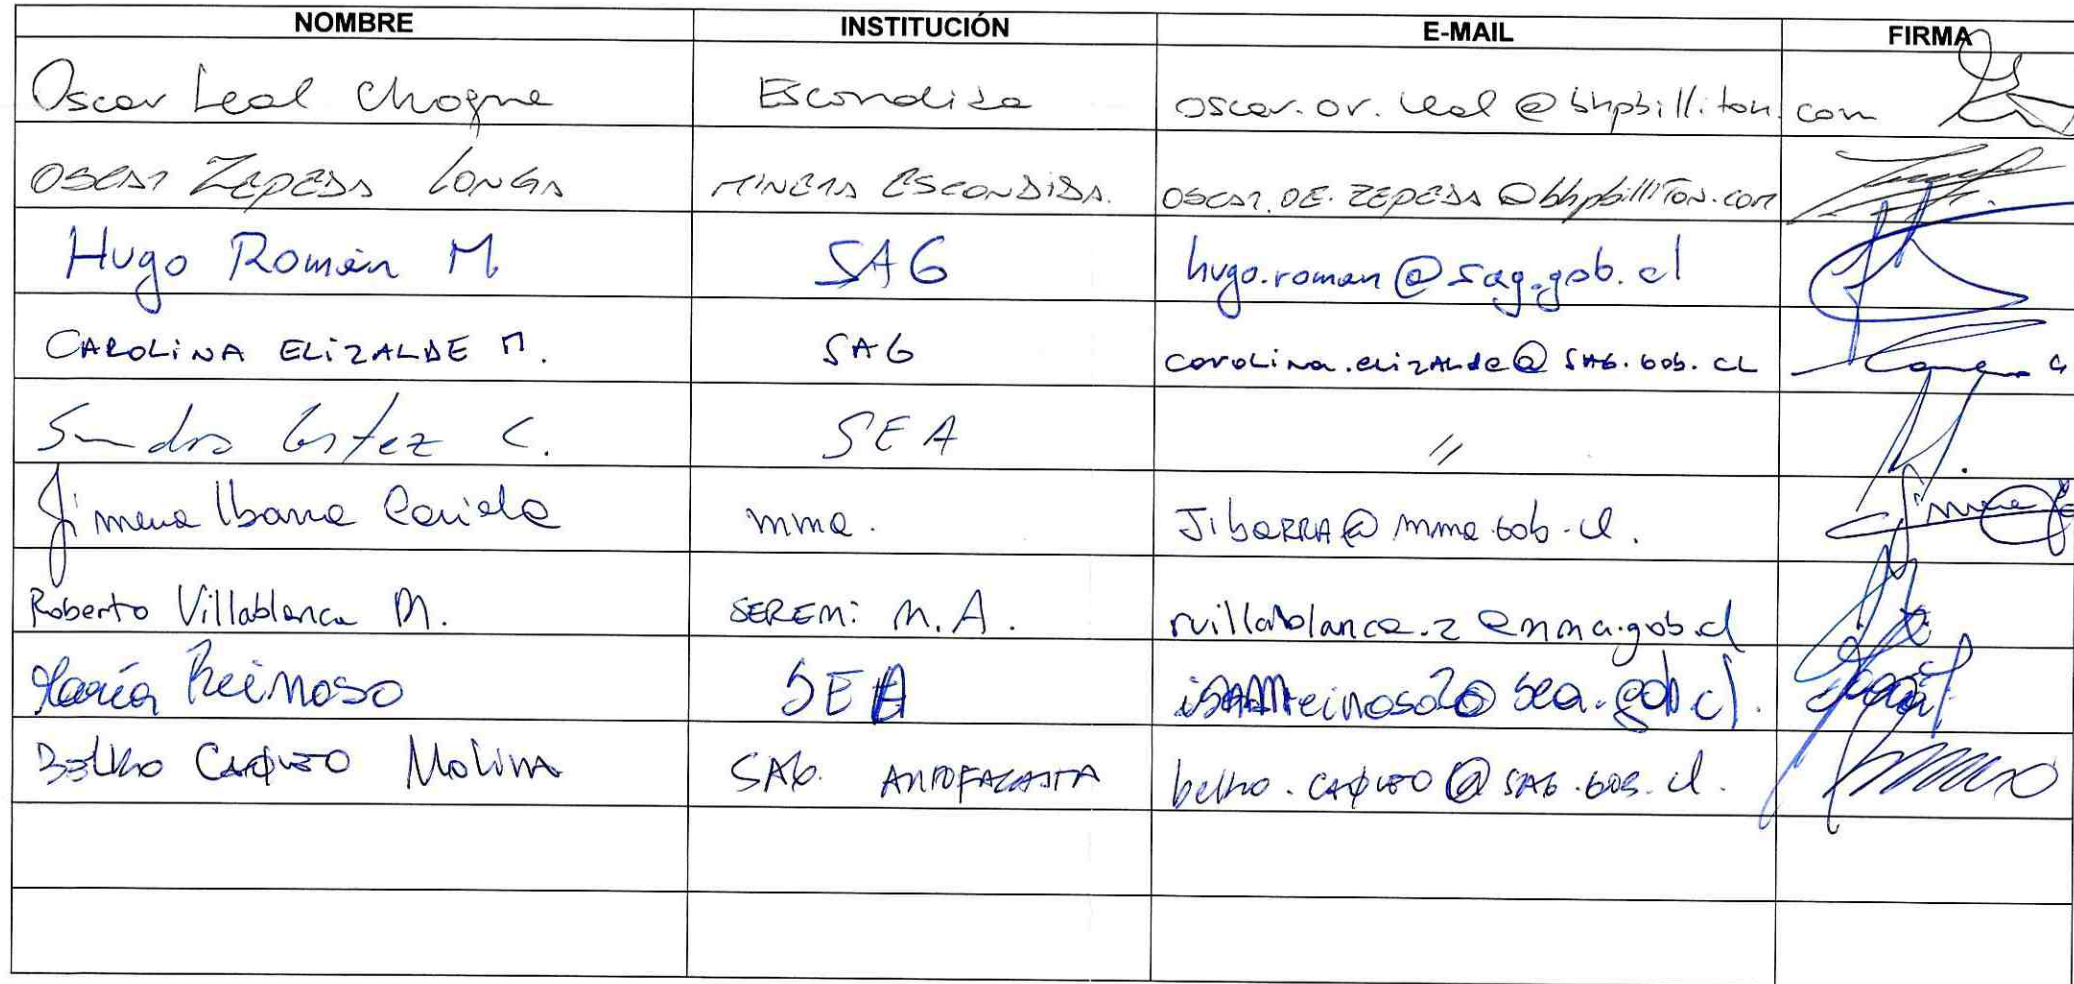 NOMBRE INSTITUCIÓN E-MAIL FIRMA
Oscar Leal Choque Escondida oscar.or.leal@bhpbilliton.com
OSCAR ZEPEDA LONGA MINERA ESCONDIDA. OSCAR.DE.ZEPEDA@bhpbilliTON.com
Hugo Román M SAG hugo.roman@sag.gob.cl
CAROLINA ELIZALDE M. SAG carolina.elizalde@SAG.GOB.CL
Sandra Cortez C. SEA //
Jimena Ibarra mma. JibaRRA@mma.gob.cl.
Roberto Villablanca M. SEREMI M.A. rvillablanca.2@mma.gob.cl
María Reinoso SEA sea.gob.cl.
CAQUEO Molina SAG. ANTOFAGASTA CAQUEO@SAG.GOB.cl.